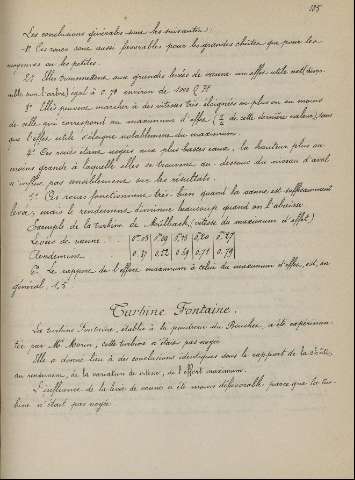 105
Les conclusions générales sont les suivantes:
1º Ces roues sont aussi favorables pour les grandes chûtes que pour les
moyennes ou les petites.
2º Elles transmettent aux grandes levées de vannes un effet utile net (dispo-
nible sur l'arbre) égal à 0.70 environ de 1000 Q H.
3º Elles peuvent marcher à des vitesses très éloignées en plus ou en moins
de celle qui correspond au maximum d'effet de cette dernière valeur) sans
que l'effet utile s'éloigne notablement du maximum.
4º Ces roues étant noyées aux plus basses eaux, la hauteur plus ou
moins grande à laquelle elles se trouvent au-dessous du niveau d'aval
n'influe pas sensiblement sur les résultats.
5º Ces roues fonctionnent très bien quand la vanne est suffisamment
levée, mais le rendement diminue beaucoup quand on l'abaisse
Exemple de la turbine de Mülbach, (vitesse du maximum d'effet)
Levées de vanne
Rendement
6º Le rapport de l'effort maximum à celui du maximum d'effet, est, en
général, 1,5
Turbine Fontaine.
La turbine Fontaine, établie à la poudrerie du Bouchet, a été expérimen-
tée par Mr Morin, cette turbine n'était pas noyée
Elle a donné lieu à des conclusions identiques sous le rapport de la chûte,
du rendement, de la variation de vitesse, de l'effort maximum.
L'influence de la levée de vanne a été moins défavorable, parce que la tur-
bine n'était pas noyée